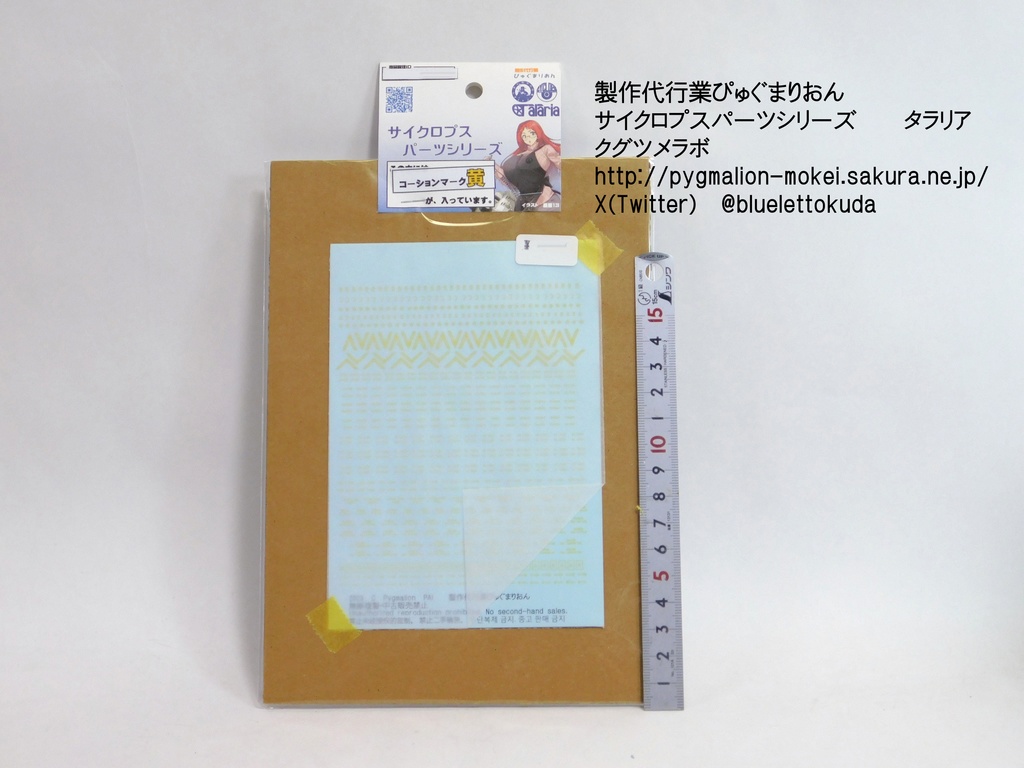 製作代行業ぴゅぐまりおん
サイクロプスパーツシリーズ　　タラリア
クグツメラボ
http://pygmalion-mokei.sakura.ne.jp/
X(Twitter)　@bluelettokuda
ぴゅぐまりおん
alaria
サイクロプス
パーツシリーズ
コーションマーク黄
が、入っています。
イラスト
シンワ
15cm
15
4
3
2
1
10
9
8
7
6
5
4
3
2
1
ぴゅぐまりおん
No second-hand sales.
중고 판매 금지